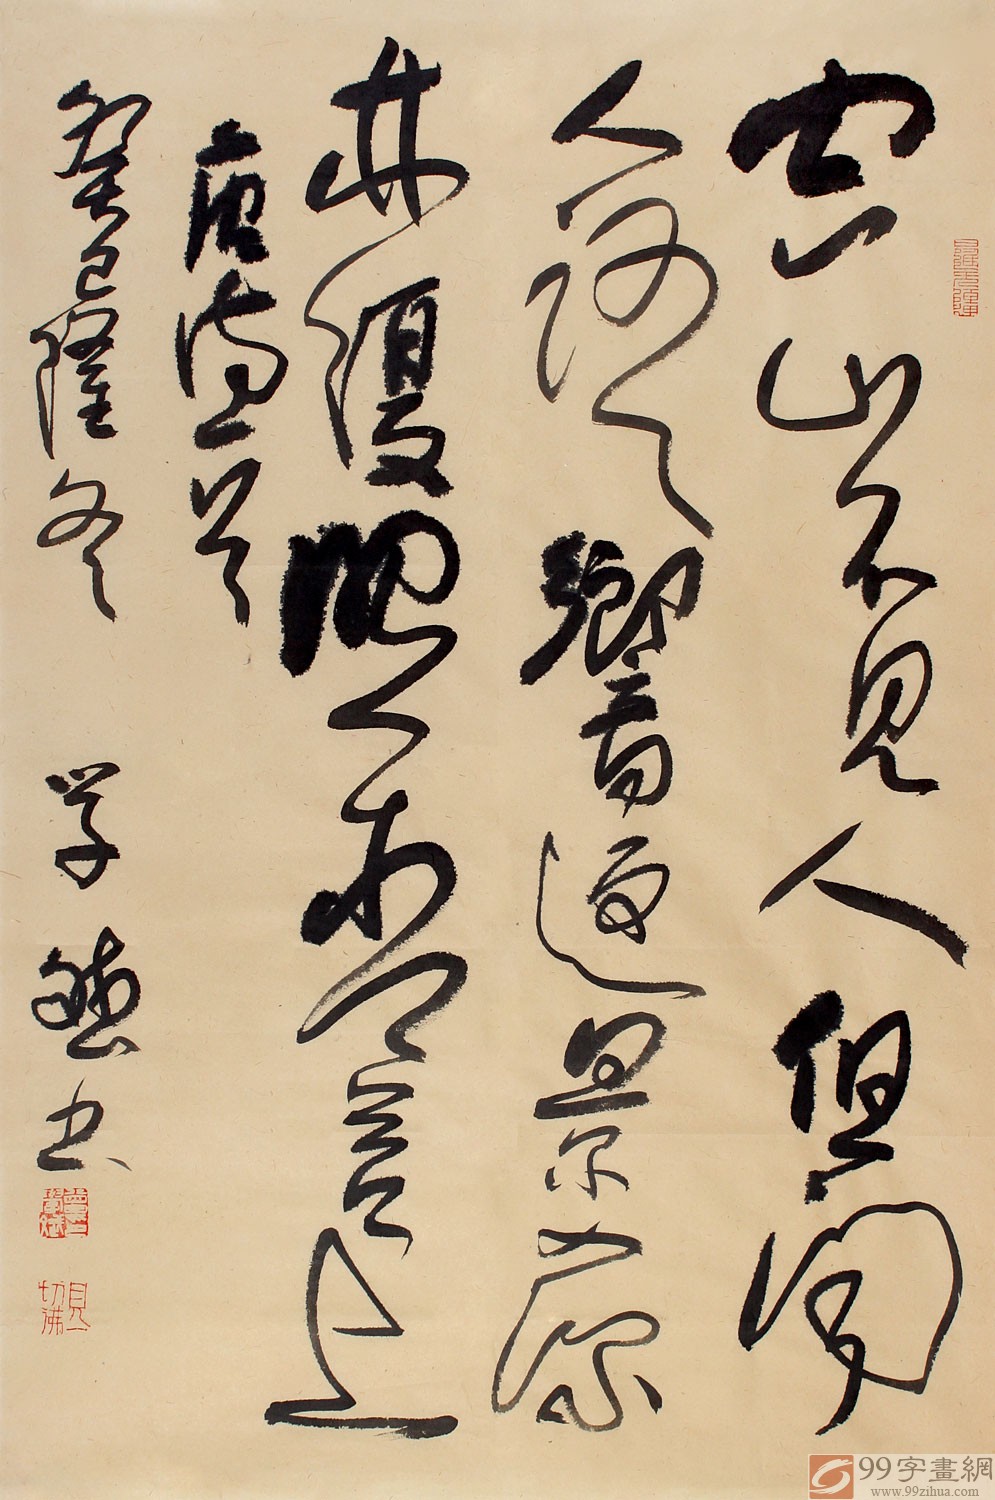 空山不見人但聞
人語響返景入深
林復照青苔上
唐诗一首
癸巳隆冬 学书
見一切佛
99字畫網
www.99zihua.com